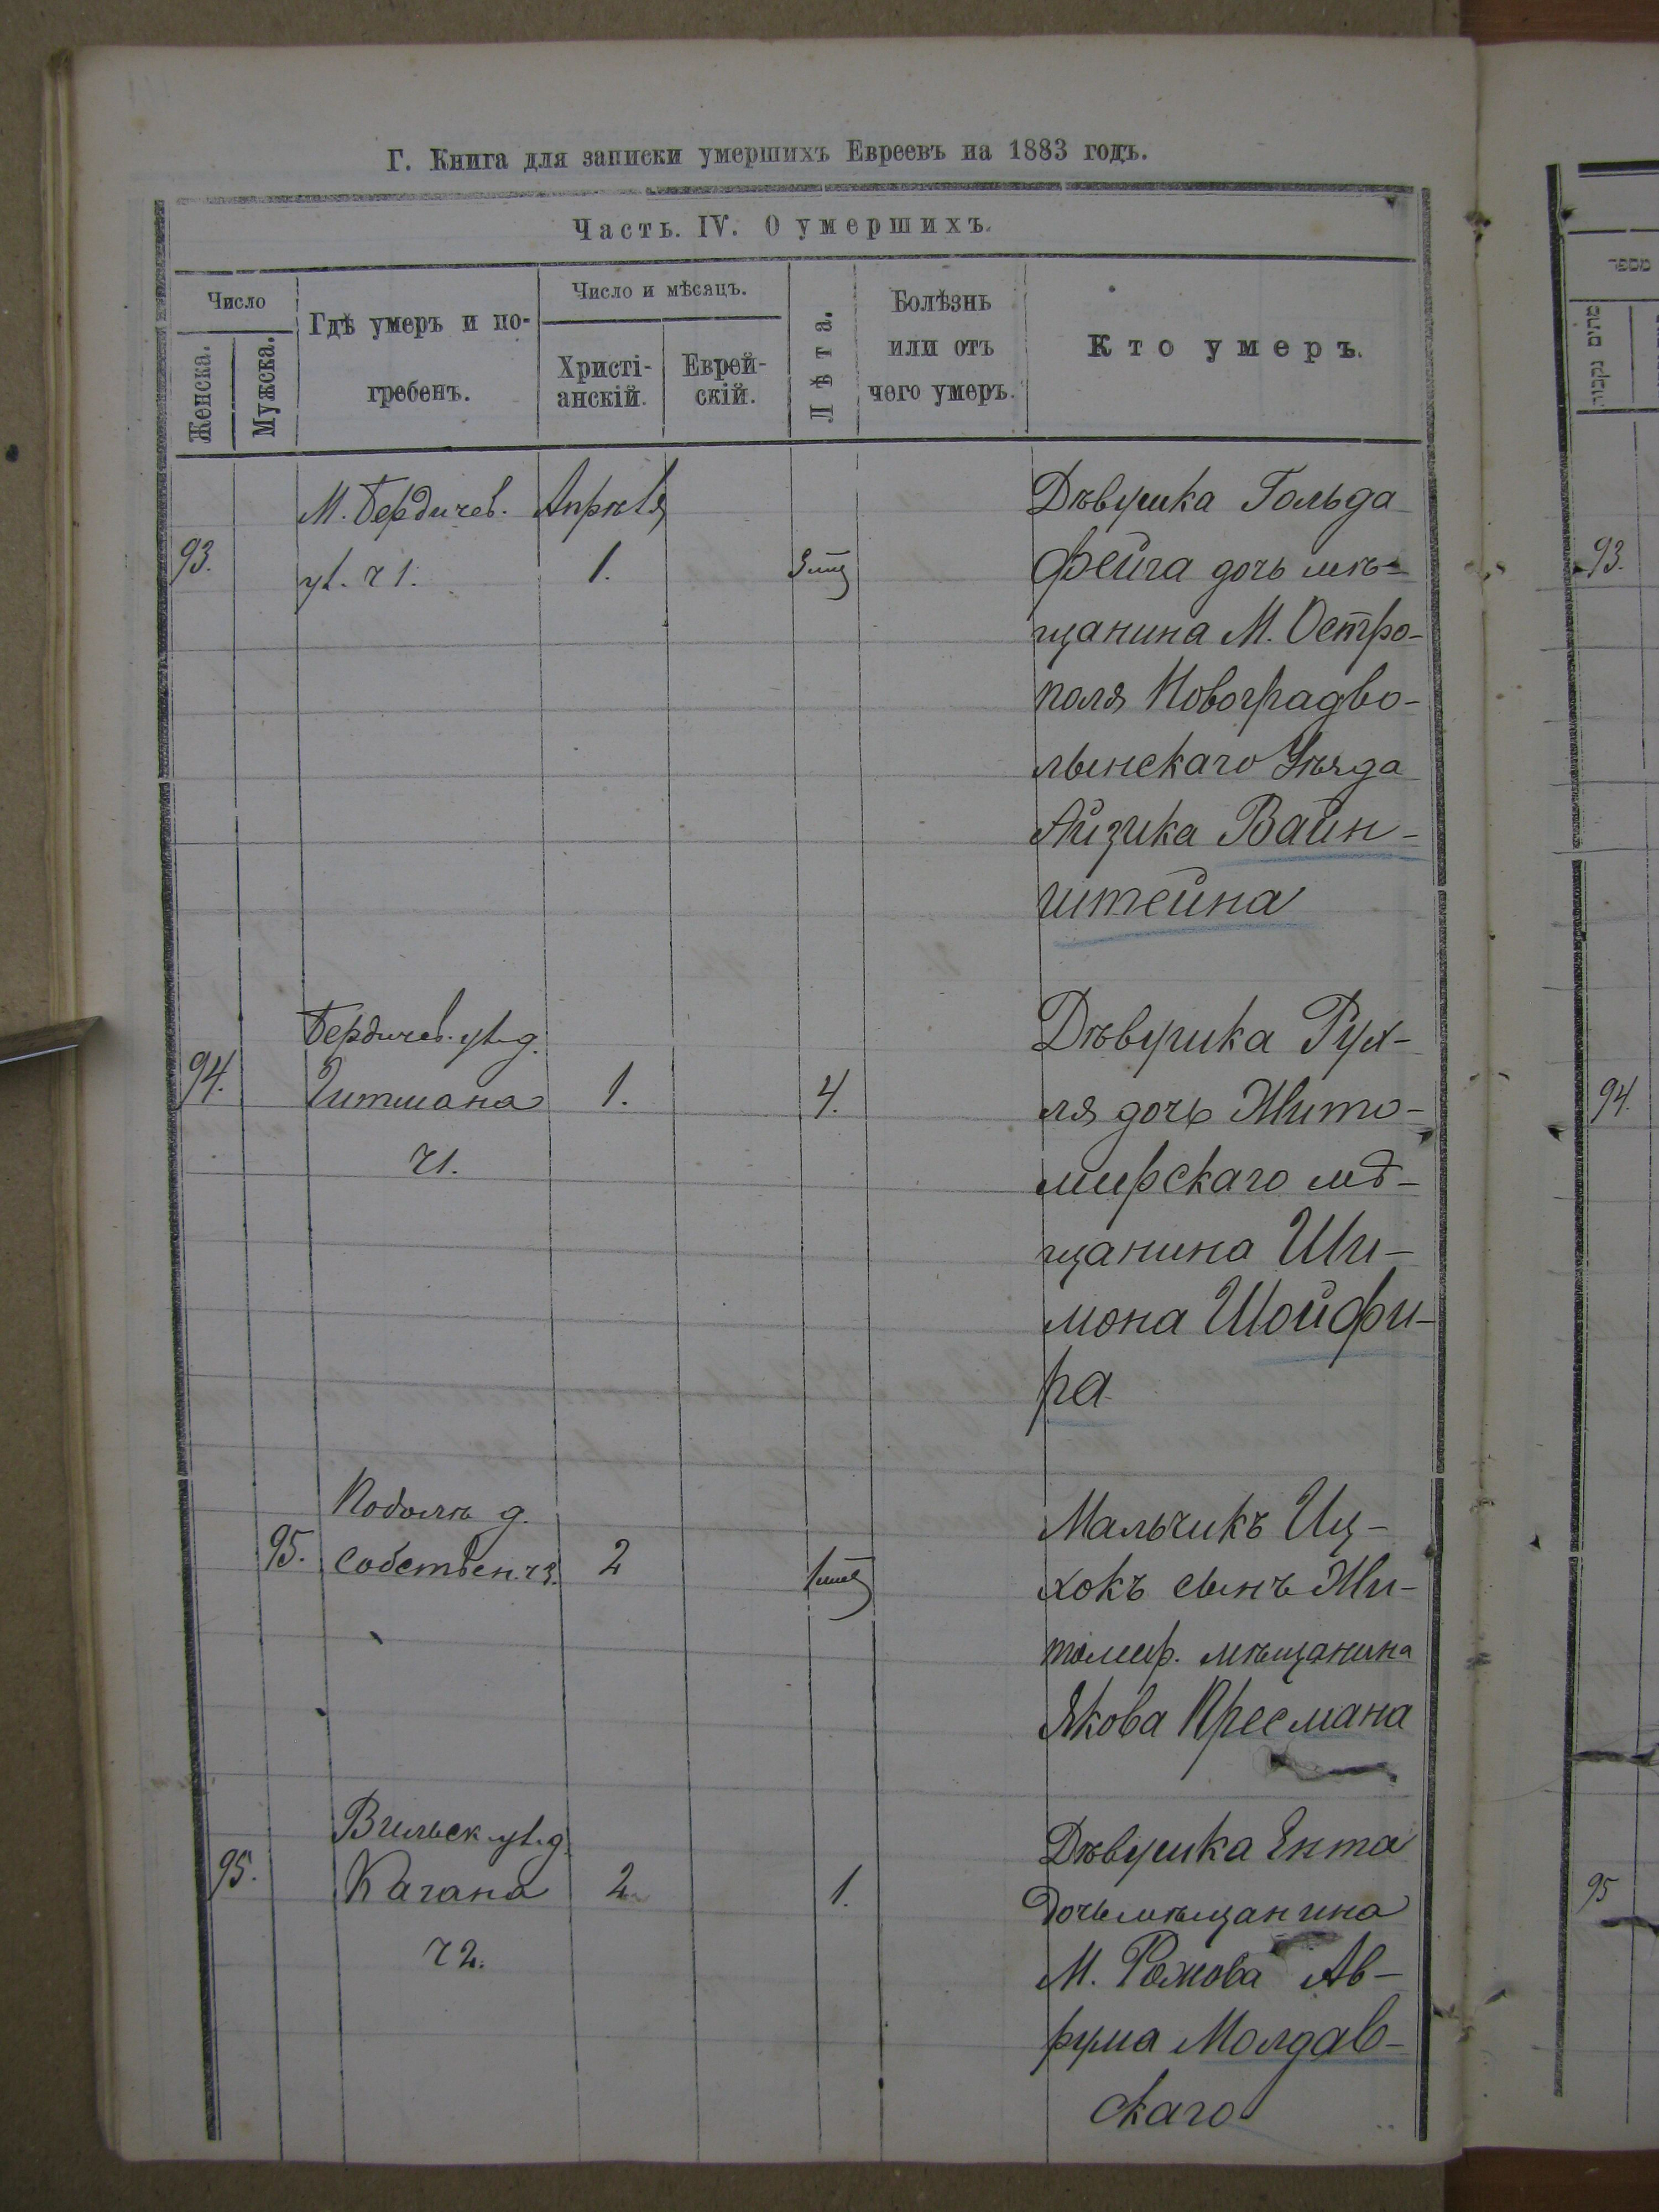 Г. Книга для записки умершихъ Евреевъ на 1883 годъ.
Часть. IV. О умершихъ.
Число
Женска.
Мужска.
Гдѣ умеръ и по-
гребенъ.
Число и мѣсяцъ.
Христі-
анскій.
Еврей-
скій.
Лѣта.
Болѣзнь
или отъ
чего умеръ.
Кто умеръ.
93.
М. Бердичев.
ул. ч 1.
Апрѣля
1.
3 мц
Дѣвушка Гольда
Фейга дочь мѣ-
щанина М. Остро-
поля Новоградво-
лынскаго Уѣзда
Айзика Вайн-
штейна
94.
Бердичев. ул. д.
Гитмана
ч 1.
1.
4.
Дѣвушка Рух-
ля дочь Жито-
мирскаго мѣ-
щанина Ши-
мона Шойфи-
ра
95.
Подолѣ д.
собствен. ч 3.
2
1 мц
Мальчикъ Иц-
хокъ сынъ Жи-
томир. мѣщанина
Якова Пресмана
95.
Вильск. ул. д.
Кагана
ч 2.
2
1.
Дѣвушка Ента
дочь мѣщанина
М. Рожова Ав-
рума Молдав-
скаго
מספר
מתים נקבות
93.
94.
95